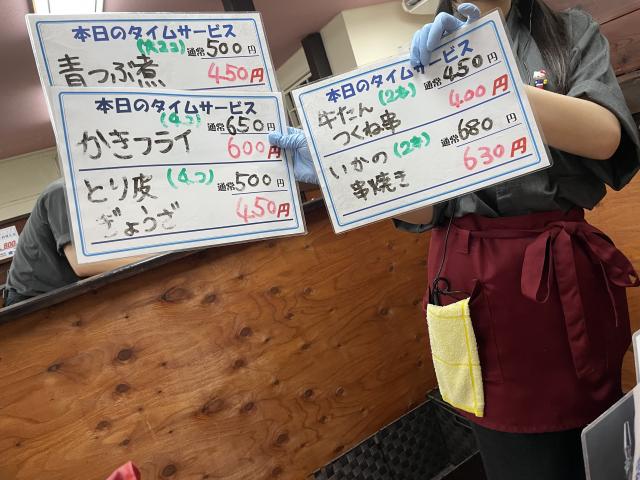 本日のタイムサービス
青つぶ煮 (大2コ) 通常500円
450円
本日のタイムサービス
かきフライ (4コ) 通常650円
600円
とり皮ぎょうざ (4コ) 通常500円
450円
本日のタイムサービス
牛たんつくね串 (2本) 通常450円
400円
いかの串焼き (2本) 通常680円
630円
800